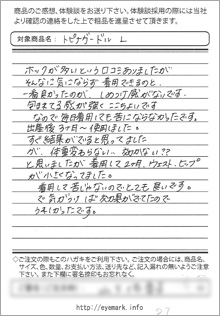 商品のご感想、体験談をお送り下さい。体験談採用の際には当社
より確認の連絡をした上で粗品を進呈させて頂きます。
対象商品名: トピナガードル L
ホックが多いという口コミありましたが
そんなに気にならず着用できるのと、
一着良かったのが、しめつけ感がないです。
包まてる感が強く ここちよいです
なので毎日着用しても苦にならなかったです。
出産後3ヶ月〜使用しました。
すぐ結果がでると思ってました
が、体重変わらないし、効かない??
と思いましたが 着用して2ヶ月、ウエスト、ヒップ
が小さくなってました。
着用して苦しくないのでとても良いです。
で気がつけば効果がでてたので
うれしかったです。
◇ご注文の際もこのハガキをご利用下さい。ご注文の場合には、商品名、
サイズ、色、数量、お支払い方法、送り先など、記入漏れの無いようご注意
下さい。また下欄に署名捺印もおねがいします。
http://eyemark.info
27